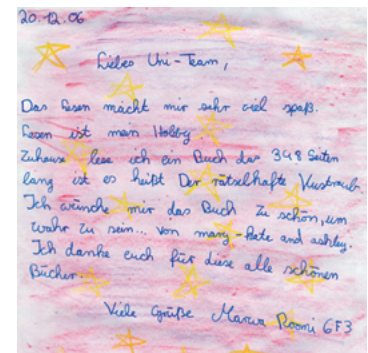 20.12.06
Liebes Uni-Team,
Das Lesen macht mir sehr viel spaß.
Lesen ist mein Hobby
Zuhause lese ich ein Buch das 348 Seiten
lang ist es heißt Der rätselhafte Kunstraub.
Ich wünche mir das Buch Zu schön, um
wahr zu sein... von mary-kate and ashley.
Ich danke euch für diese alle schönen
Bücher.
Viele Grüße Marwa Roomi 6F3